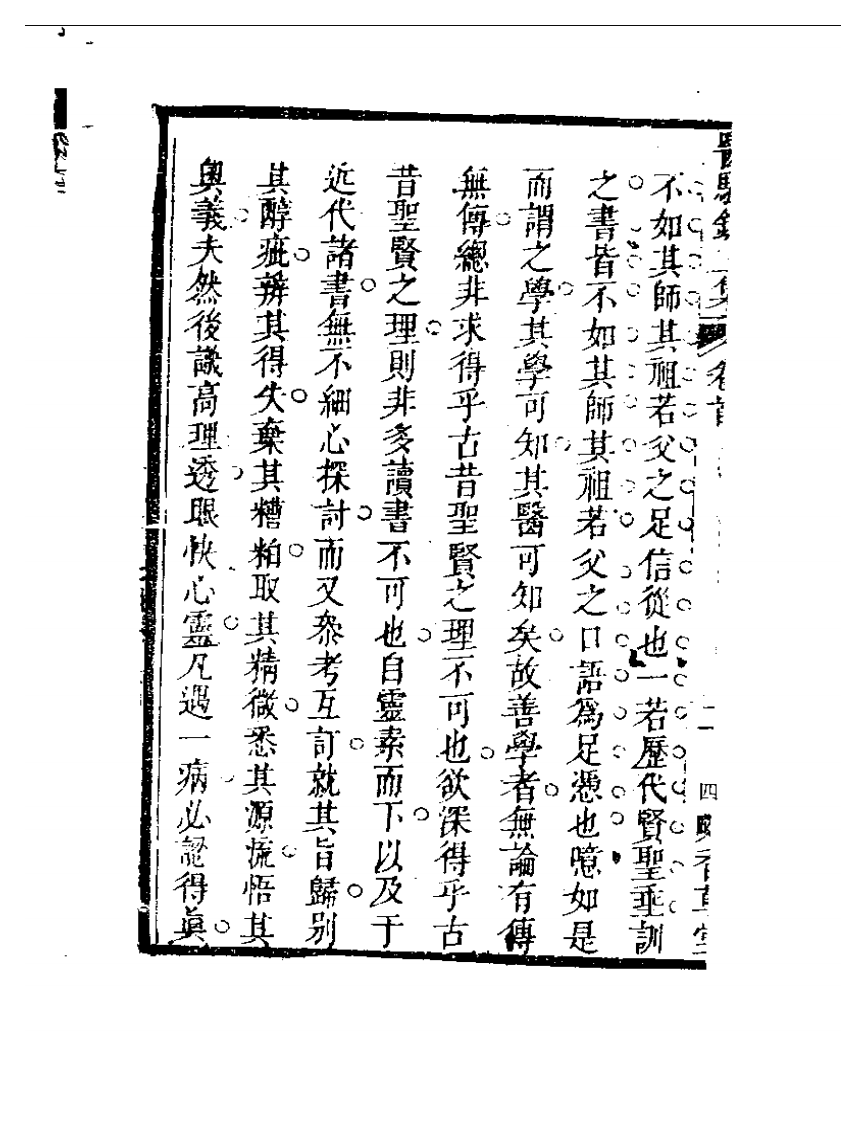 不如其師其祖若父之足信從也一若歷代賢聖垂訓
之書皆不如其師其祖若父之口語爲足憑也噫如是
而謂之學其學可知其醫可知矣故善學者無論有傳
無傳總非求得乎古昔聖賢之理不可也欲深得乎古
昔聖賢之理則非多讀書不可也自靈素而下以及于
近代諸書無不細心探討而又叅考互訂就其旨歸别
其醇疵辨其得失棄其糟粕取其精微悉其源流悟其
奥義夫然後識高理透眼快心靈凡遇一病必認得眞
卷首
四